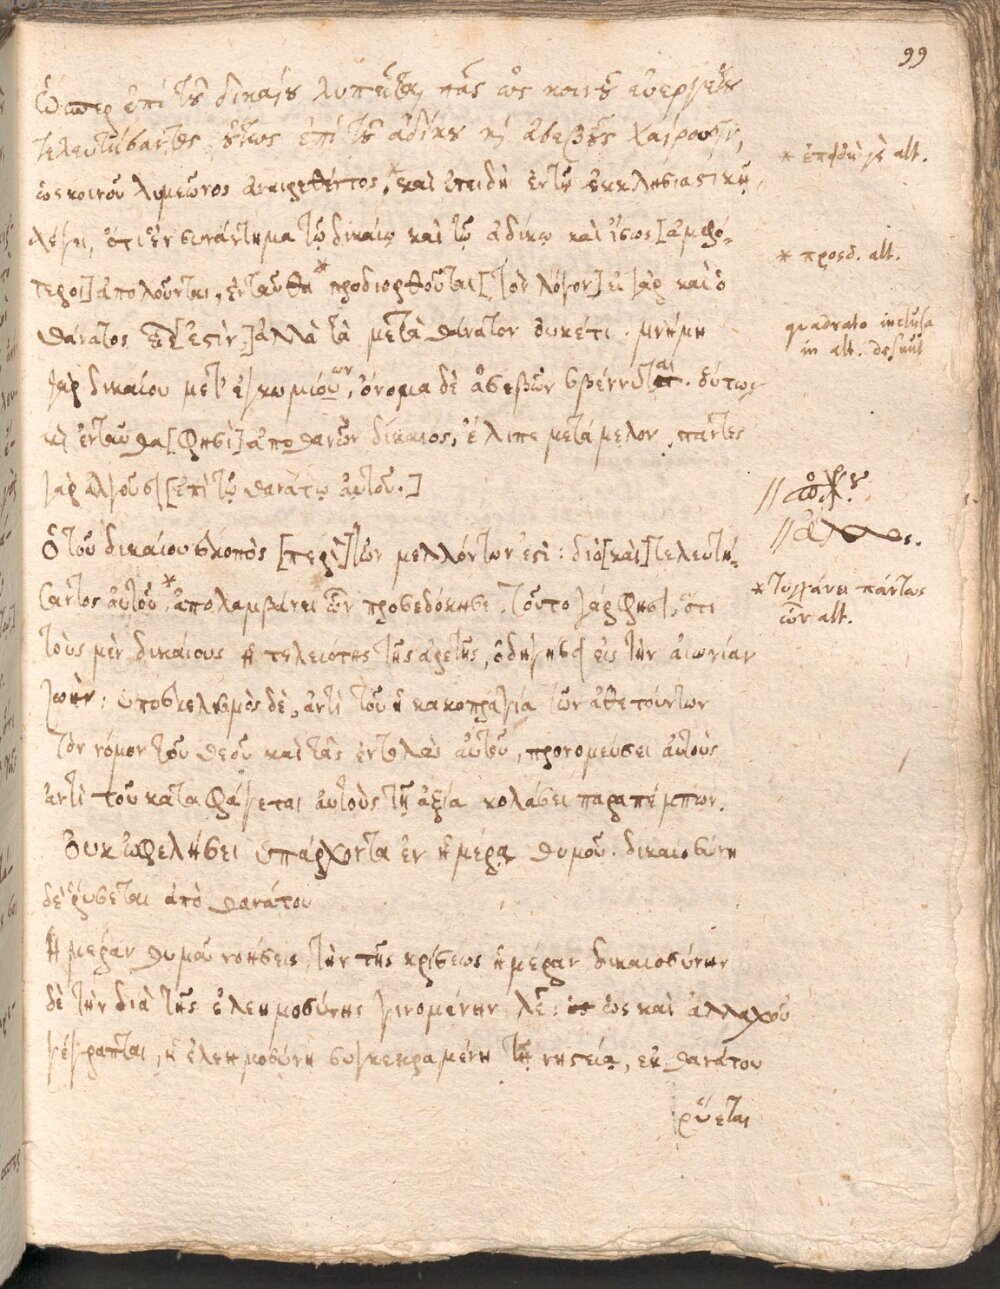 99
Ὥσπερ ἐπὶ τοῦ δικαίου λυπεῖται πᾶς ὡς κοινοῦ εὐεργέτου
τελευτήσαντος, οὕτως ἐπὶ τοῦ ἀδίκου καὶ ἀσεβοῦς χαίρουσιν,
ὡς κοινοῦ λυμεῶνος ἀναιρεθέντος,* καὶ ἐπειδὴ ἐν τῷ ἐκκλησιαστικῇ
λέγει, ὅτι ἓν συνάντημα τῷ δικαίῳ καὶ τῷ ἀδίκῳ καὶ ἴσως [ἀμφό-
τεροι] ἀπολοῦνται, ἐνταῦθα * προδιορθοῦται [τὸν λόγον] εἰ γὰρ καὶ ὁ
θάνατος ἐστὶν,] ἀλλὰ τὰ μετὰ θάνατον οὐκέτι. μνήμη
γὰρ δικαίου μετ' ἐγκωμίου ων, ὄνομα δὲ ἀσεβῶν σβέννυται. οὕτως
καὶ ἐνταῦθα [φησὶ] ἀποθανὼν δίκαιος, ἔλιπε μετάμελον, πάντες
γὰρ ἀλγοῦσι [ἐπὶ τῷ θανάτῳ αὐτοῦ.]
Ὁ τοῦ δικαίου σκοπὸς [περὶ] τῶν μελλόντων ἐστί: διὸ [καὶ] τελευτή-
σαντος αὐτοῦ,* ἀπολαμβάνει ὧν προσεδόκησε. τοῦτο γὰρ φησι, ὅτι
τοὺς μὲν δικαίους ἡ τελειότης τῆς ἀρετῆς, ὁδηγήσει εἰς τὴν αἰωνίαν
ζωήν: ὑποσκελισμὸς δὲ, ἀντὶ τοῦ ἡ κακοπραγία τῶν ἀθετούντων
τὸν νόμον τοῦ θεοῦ καὶ τὰς ἐντολὰς αὐτοῦ, προνομεύσει αὐτοὺς
ἀντὶ τοῦ καταφάγεται αὐτοὺς τῇ ἀξίᾳ κολάσει παραπέμπων.
Οὐκ ὠφελήσει ὑπάρχοντα ἐν ἡμέρᾳ θυμοῦ. δικαιοσύνη
δὲ ῥύσεται ἀπὸ θανάτου
Ἡμέραν θυμοῦ νοήσεις τὴν τῆς κρίσεως ἡμέραν δικαιοσύνην
δὲ τὴν διὰ τῆς ἐλεημοσύνης γινομένην λέ: ὡς καὶ ἀλλαχοῦ
γέγραπται, ἡ ἐλεημοσύνη συγκεκραμένη τῇ νηστείᾳ, ἐκ θανάτου
ῥύεται
* ἐπειδὴ γὰρ alt.
* προσδ. alt.
quadrato inclusa
in alt. desunt
* τυγχάνει πάντως
ὧν alt.